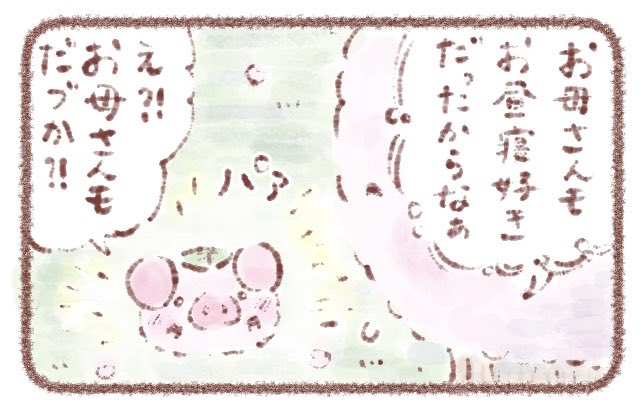 お母さんモ
お昼寝好き
だったからなぁ
パァ
え?!
お母さんモ
だヅか?!